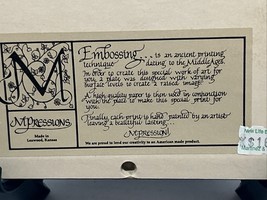 M
MPRESSIONS
Made in
Leawood, Kansas
Embossing... is an ancient printing
technique dating to the Middle Ages.
In order to create this special work of art for
you, a plate was designed with varying
surface levels to create a raised image.
A high quality paper is then used in conjunction
with the plate to make this special print for
you.
Finally, each print is hand painted by an artist
leaving a beautiful lasting...
MPRESSION!
We are proud to lend our creativity to an American made product.
New Life